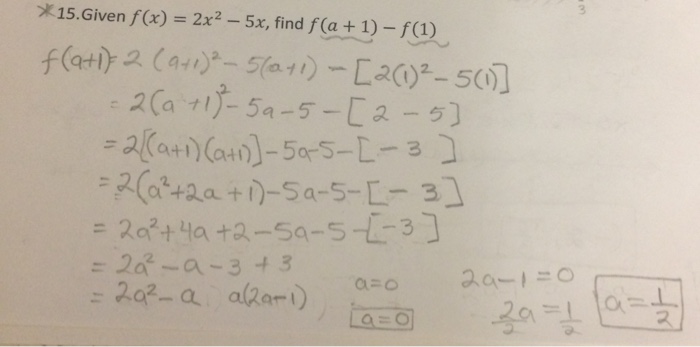 3
*15. Given f(x) = 2x² – 5x, find f(a + 1) – f(1)
f(a+1)= 2 (a+1)² - 5(a+1) - [2(1)² - 5(1)]
= 2(a+1)² - 5a - 5 - [2 - 5]
= 2[(a+1)(a+1)] - 5a - 5 - [-3]
= 2(a²+2a+1) - 5a - 5 - [-3]
= 2a² + 4a + 2 - 5a - 5 - [-3]
= 2a² - a - 3 + 3
= 2a² - a a(2a-1) a=0 2a-1=0
a=0 2a/2 = 1/2 a = 1/2